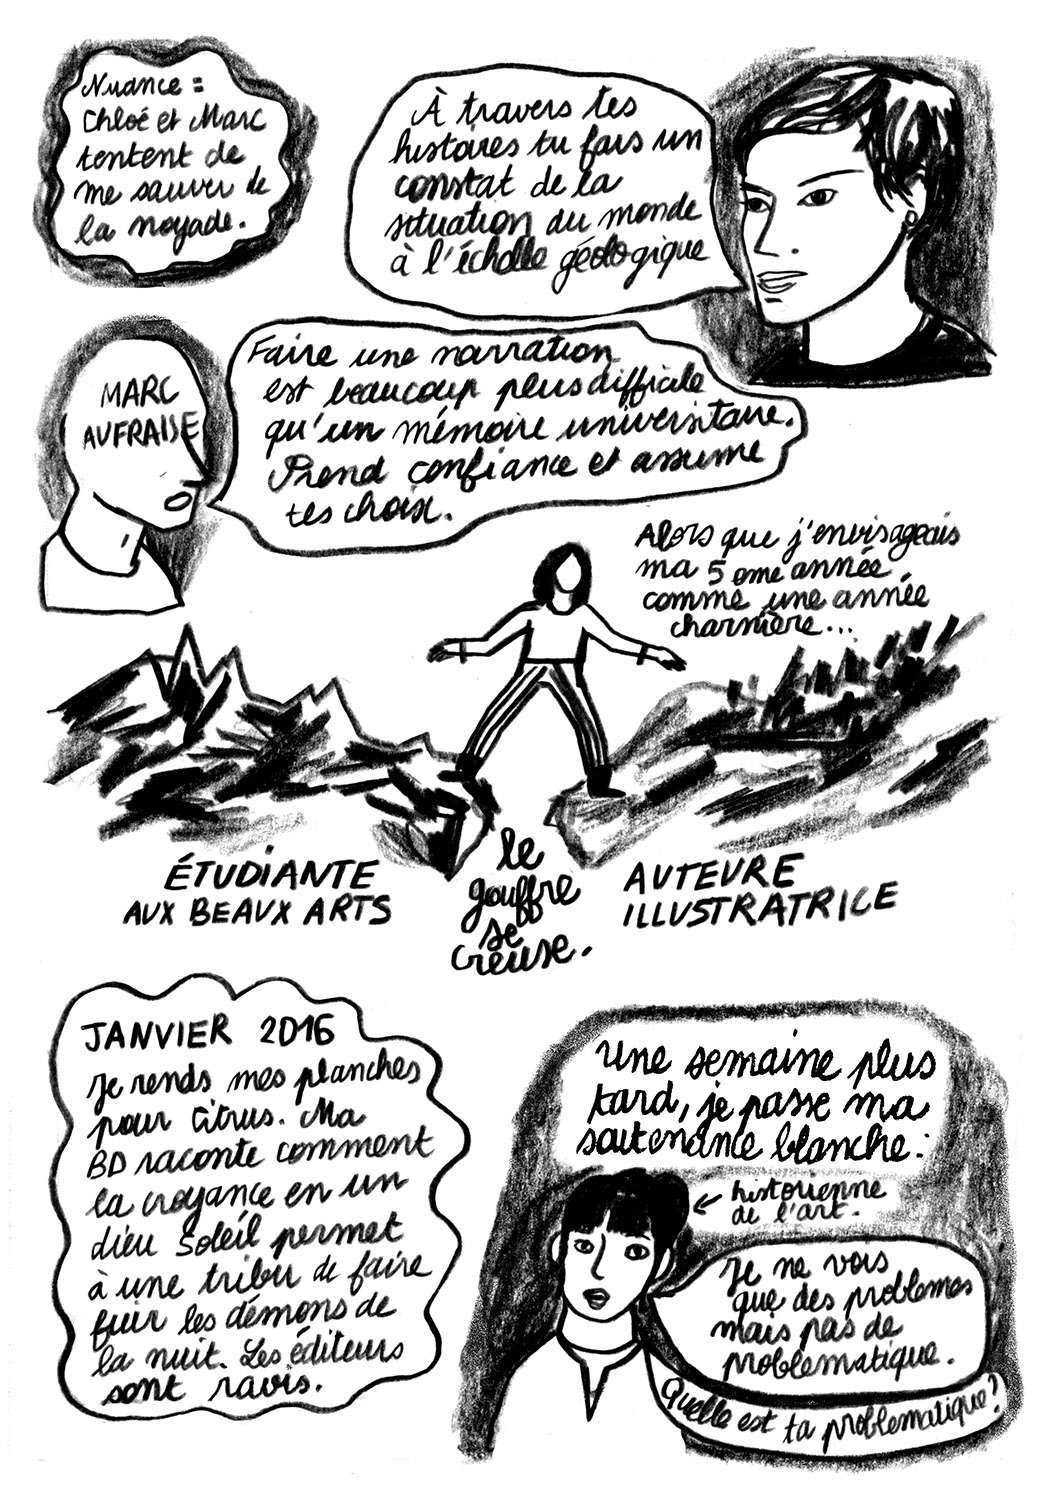 Nuance =
Chloé et Marc
tentent de
me sauver de
la noyade.
À travers tes
histoires tu fais un
constat de la
situation du monde
à l'échelle géologique
MARC
AUFRAISE
Faire une narration
est beaucoup plus difficile
qu'un mémoire universitaire.
Prend confiance et assume
tes choix.
Alors que j'envisageais
ma 5 eme année
comme une année
charnière...
ÉTUDIANTE
AUX BEAUX ARTS
le
gouffre
se
creuse.
AUTEURE
ILLUSTRATRICE
JANVIER 2016
Je rends mes planches
pour Citrus. Ma
BD raconte comment
la croyance en un
dieu Soleil permet
à une tribu de faire
fuir les démons de
la nuit. Les éditeurs
sont ravis.
Une semaine plus
tard, je passe ma
soutenance blanche :
← historienne
de l'art.
Je ne vois
que des problemes
mais pas de
problematique.
Quelle est ta problematique?